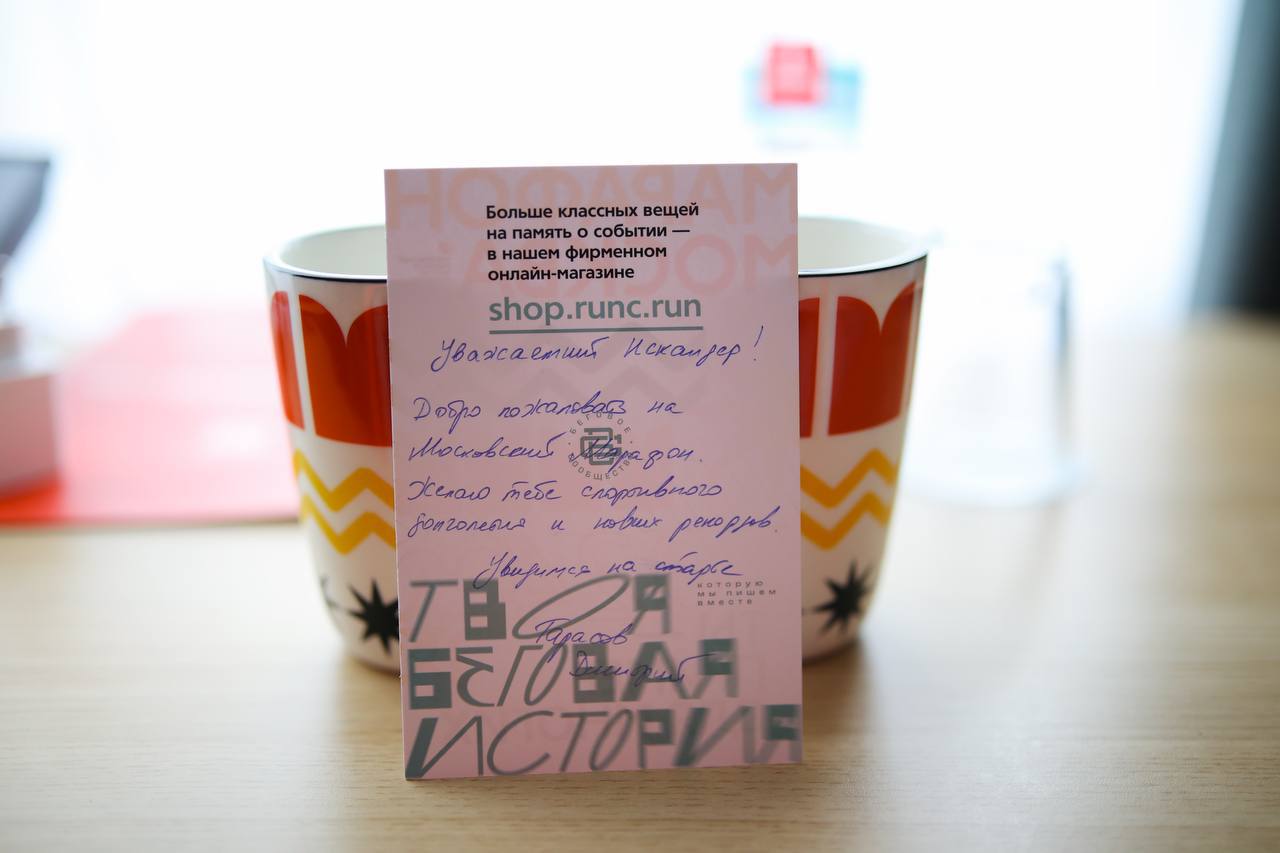 Больше классных вещей
на память о событии —
в нашем фирменном
онлайн-магазине
shop.runc.run
Уважаемый Искандер!
Добро пожаловать на
Московский Марафон.
Желаю тебе спортивного
долголетия и новых рекордов.
Увидимся на старте
Тарасов
Дмитрий
БЕГОВОЕ СООБЩЕСТВО
которую
мы пишем
вместе
ТВОЯ
БЕГОВАЯ
ИСТОРИЯ